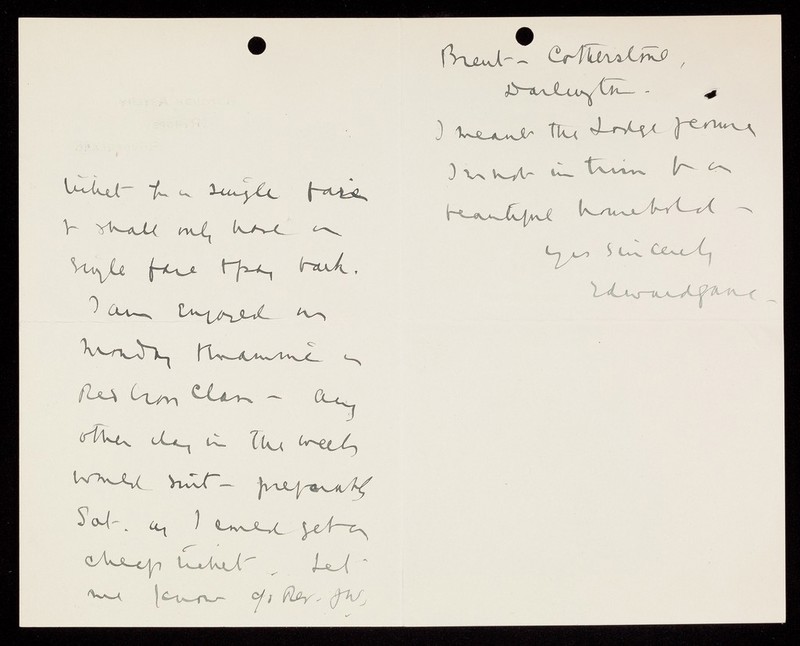 ticket for a single fare
& shall only have a
single fare to pay back.
I am engaged on
Monday to examine a
Red Cross Class – Any
other day in the week
would suit – preferably
Sat. as I could get a
cheap ticket. Let
me know c/o Rev.
Brent – Cotherstone,
Darlington.
I meant the Lodge
I am not in trim for a
beautiful household –
yrs sincerely
Edward